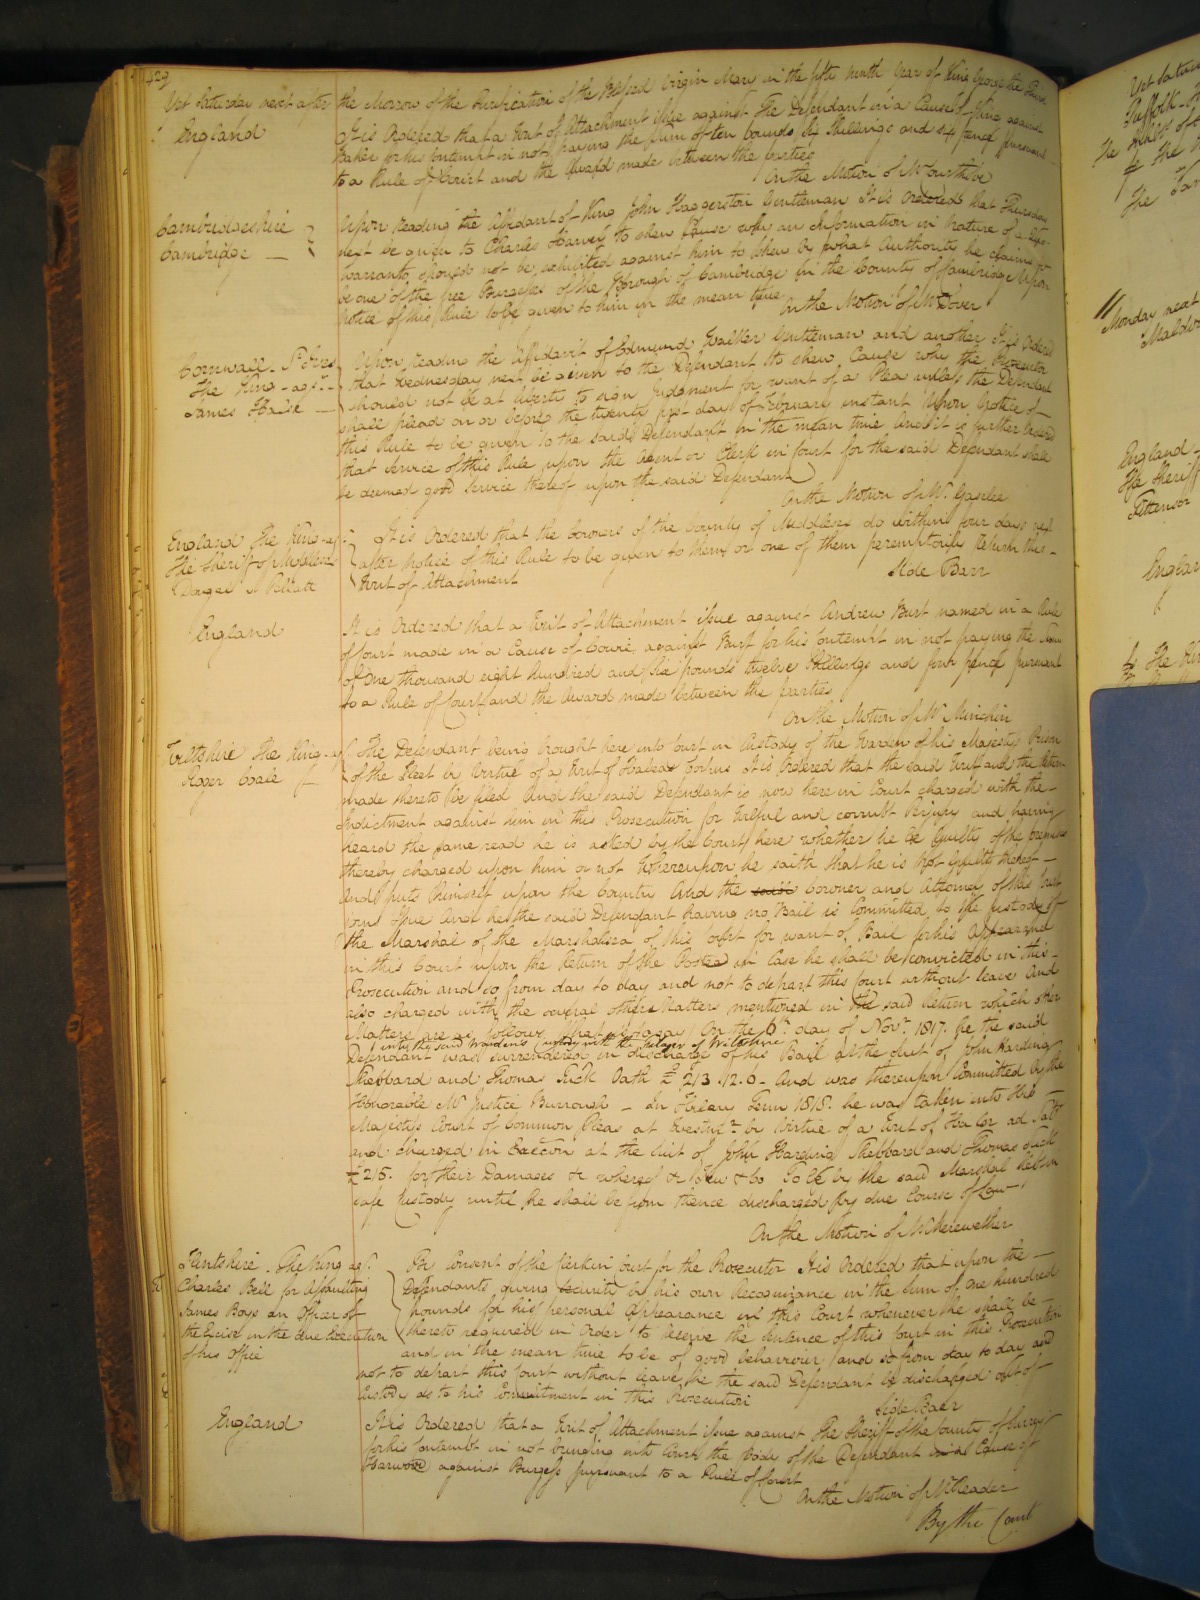 429
Yet Saturday next after the Morrow of the Purification of the Blessed Virgin Mary in the fifty ninth Year of King George the Third
England
It is Ordered that a Writ of Attachment issue against The Defendant in a Cause of King against
Baker for his Contempt in not paying the sum of ten pounds Shillings and pence pursuant
to a Rule of Court and the Award made between the parties
On the Motion of Mr
Cambridgeshire
Cambridge
Upon reading the Affidavit of King John Haggerston Gentleman It is Ordered that Thursday
next be given to Charles Harvey to shew Cause why an Information in Nature of a Quo
warranto should not be exhibited against him to shew by what Authority he claims to
be one of the free Burgesses of the Borough of Cambridge in the County of Cambridge Upon
Notice of this Rule to be given to him in the mean time
On the Motion of Mr Dover
Cornwall St Ives
The King agt
James Halse
Upon reading the Affidavit of Edmund Walker Gentleman and another It is Ordered
that Wednesday next be given to the Defendant to shew Cause why the Prosecutor
should not be at liberty to sign Judgment for want of a Plea unless the Defendant
shall plead on or before the twenty first day of February instant Upon Notice of
this Rule to be given to the said Defendant in the mean time And it is further Ordered
that service of this Rule upon the Agent or Clerk in Court for the said Defendant shall
be deemed good service thereof upon the said Defendant
On the Motion of Mr. Gaselee
England The King agt
The Sheriff of Middlesex
It is Ordered that the Coroners of the County of Middlesex do within four days next
after Notice of this Rule to be given to them or one of them peremptorily Return this
Writ of Attachment
Side Barr
England
It is Ordered that a Writ of Attachment issue against Andrew Burt named in a Rule
of Court made in a Cause of against Burt for his Contempt in not paying the Sum
of One thousand eight hundred and six pounds twelve Shillings and four pence pursuant
to a Rule of Court and the Award made between the parties
On the Motion of Mr Minchin
Wiltshire The King agt
Roger
The Defendant being brought here into Court in Custody of the Warden of his Majestys Prison
of the Fleet by Virtue of a Writ of Habeas Corpus It is Ordered that the said Writ and the Return
made thereto be filed And the said Defendant is now here in Court charged with the
Indictment against him in this Prosecution for Wilful and corrupt Perjury and having
heard the same read he is asked by the Court here whether he be Guilty of the premises
thereby charged upon him or not Whereupon he saith that he is Not Guilty thereof
And puts himself upon the Country And the said Coroner and Attorney of this Court
joins Issue And he the said Defendant having no Bail is Committed to the Custody of
the Marshal of the Marshalsea of this Court for want of Bail for his Appearance
in this Court upon the Return of the Postea in Case he shall be convicted in this
Prosecution and so from day to day and not to depart this Court without leave And
also charged with the several other Matters mentioned in the said Return which other
Matters are as follows that is to say On the 6th day of Novr 1817. he the said
into the said Warden's Custody with the Keeper of Wiltshire
Defendant was surrendered in discharge of his Bail at the Suit of John Harding
Shebbard and Thomas Tuck Oath £213.12.6 And was thereupon Committed by the
Honorable Mr Justice Burrough In Hilary Term 1818. he was taken into His
Majestys Court of Common Pleas at Westmr by Virtue of a Writ of Ha Cor ad Satis
and charged in Execon at the Suit of John Harding Shebbard and Thomas Tuck
£215. for their Damages & whereof & To be by the said Marshal kept in
safe Custody until he shall be from thence discharged by due Course of Law
On the Motion of Mr Merewether
Hantshire. The King agt.
Charles Bell for Assaulting
James Boys an Officer of
the Excise in the due Execution
of his Office
By Consent of the Clerk in Court for the Prosecutor It is Ordered that upon the
Defendants giving security by his own Recognizance in the Sum of One hundred
pounds for his personal Appearance in this Court whenever he shall be
thereto required in Order to receive the Sentence of this Court in this Prosecution
and in the mean time to be of good behaviour and so from day to day and
not to depart this Court without leave he the said Defendant be discharged out of
Custody as to his Commitment in this Prosecution
Side Barr
England
It is Ordered that a Writ of Attachment issue against The Sheriff of the County of Surrey
for his Contempt in not bringing into Court the Body of the Defendant in a Cause of
Harwood against Burgess pursuant to a Rule of Court
On the Motion of Mr Reader
By the Court
Monday next
England
The Sheriff